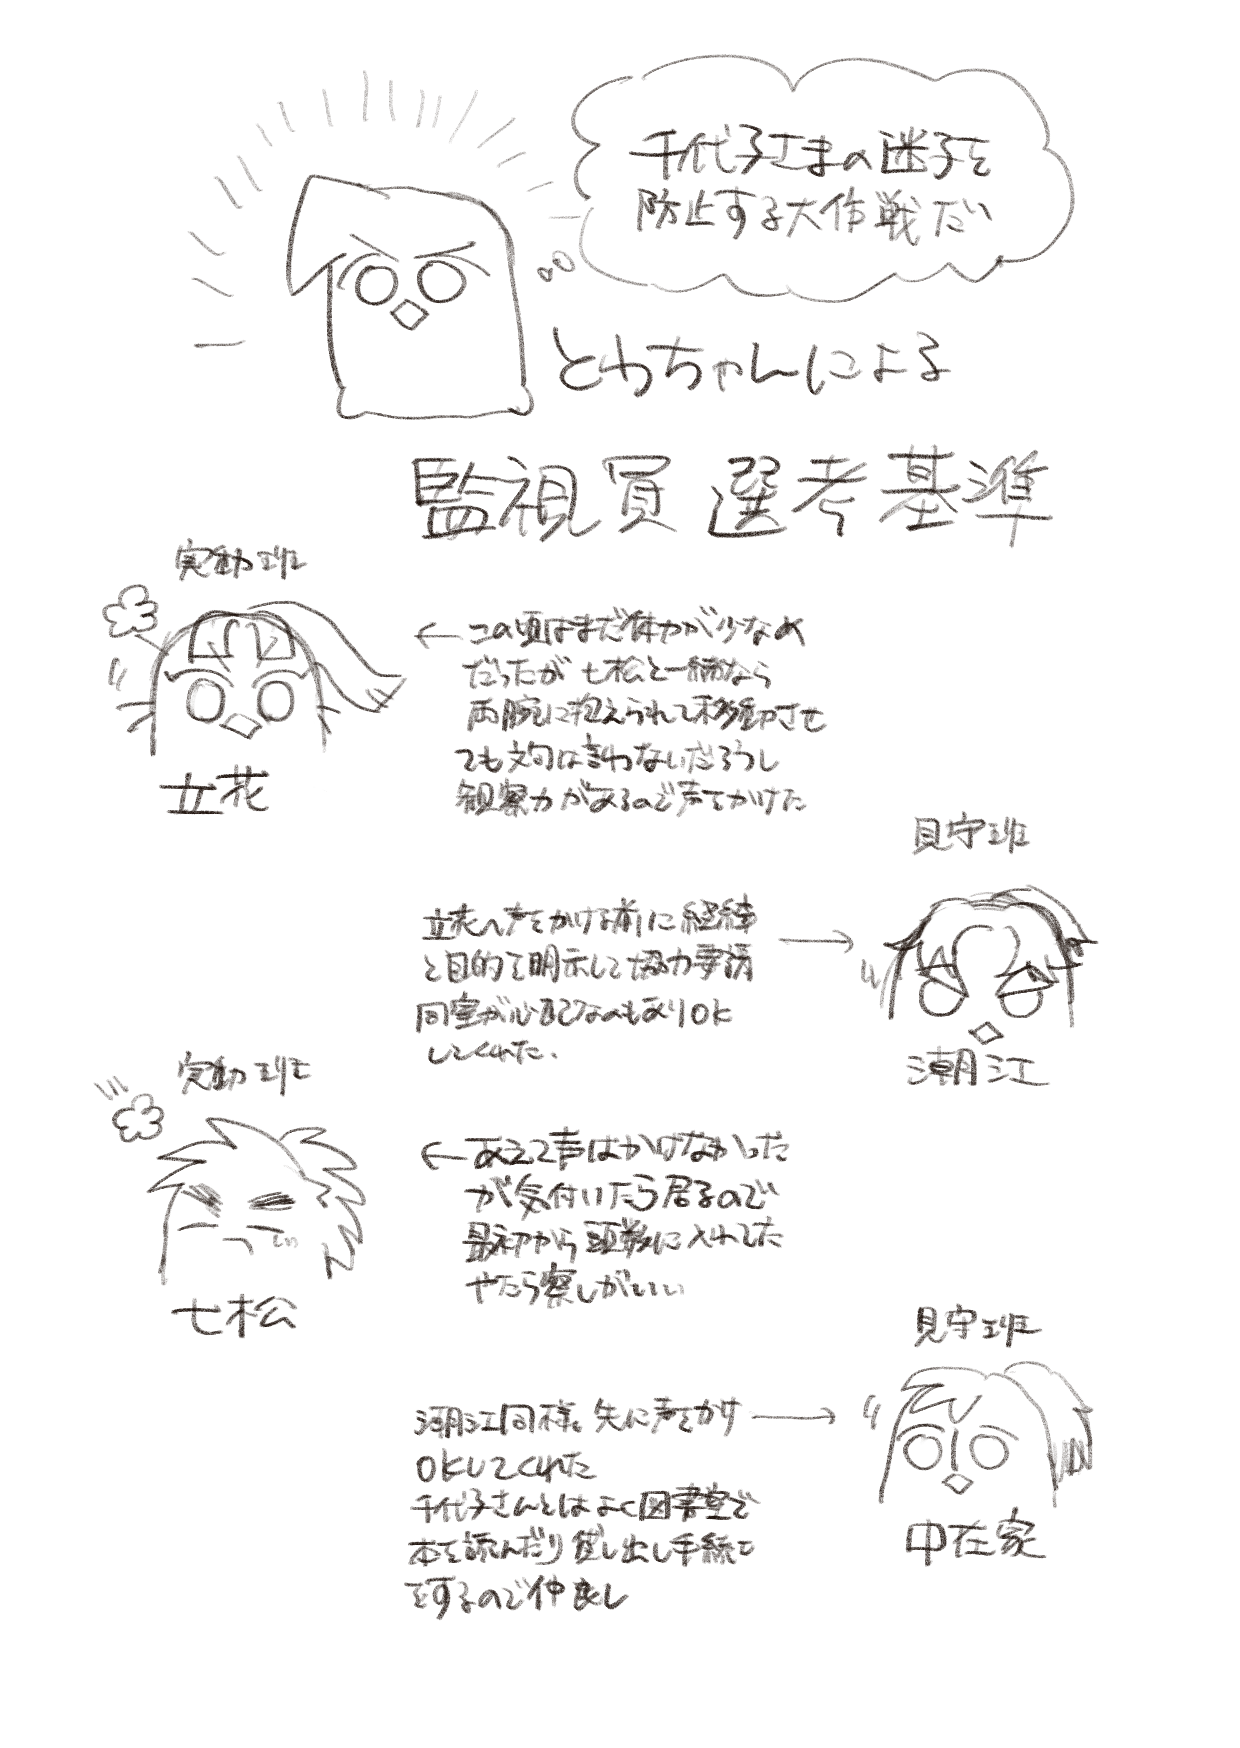 千代子さまの迷子を
防止する大作戦だい
とわちゃんによる
監視員選考基準
実動班
←この頃はまだ体力が少なめ
だったが七松と一緒なら
両腕に抱えられて移動させ
ても文句は言わないだろうし
観察力があるので声をかけた
立花
見守班
立花へ声をかける前に経緯
と目的を明示して協力要請
同室が心配なのもありOK
してくれた.
→
潮江
実動班
←あえて声はかけなかった
が気付いたら居るので
最初から頭数に入れてた
やたら察しがいい
七松
見守班
潮江同様、先に声をかけ→
OKしてくれた
千代子さんとはよく図書室で
本を読んだり貸し出し手続き
をするので仲良し
中在家